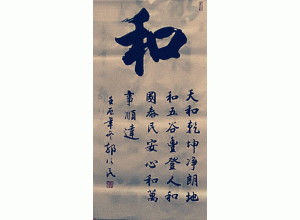 和
天和乾坤净朗地
和五谷豐登人和
國泰民安心和萬
事順達